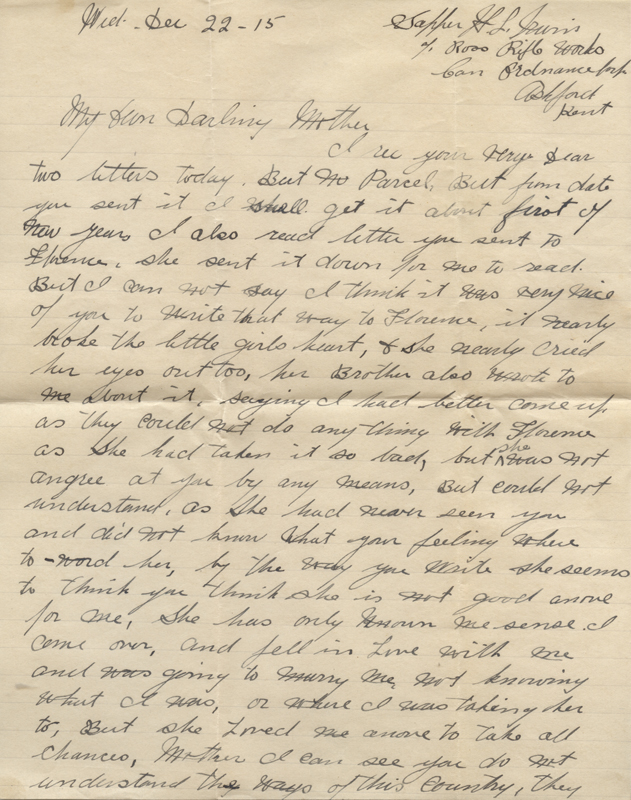 Wed. Dec 22-15
Sapper H. L. Irwin
c/o Ross Rifle Works
Can Ordnance Corp
Ashford
Kent
My Own Darling Mother
I rec your very dear
two letters today. But no Parcel, But from date
you sent it I shall get it about first of
New years I also read letter you sent to
Florence. she sent it down for me to read.
But I can not say I think it was very nice
of you to write that way to Florence, it nearly
broke the little girls heart, & she nearly cried
her eyes out too, her Brother also wrote to
me about it, saying I had better come up
as they could not do any thing with Florence
as she had taken it so bad, but she was not
angree at you by any means, But could not
understand, as she had never seen you
and did not know what your feeling where
to-word her, by the way you write she seems
to think you think she is not good anove
for me, She has only known me sense I
come over, and fell in Love with me
and was going to marry me, not knowing
what I was, or where I was taking her
to, But she Loved me anove to take all
chances, Mother I can see you do not
understand the ways of this country, they